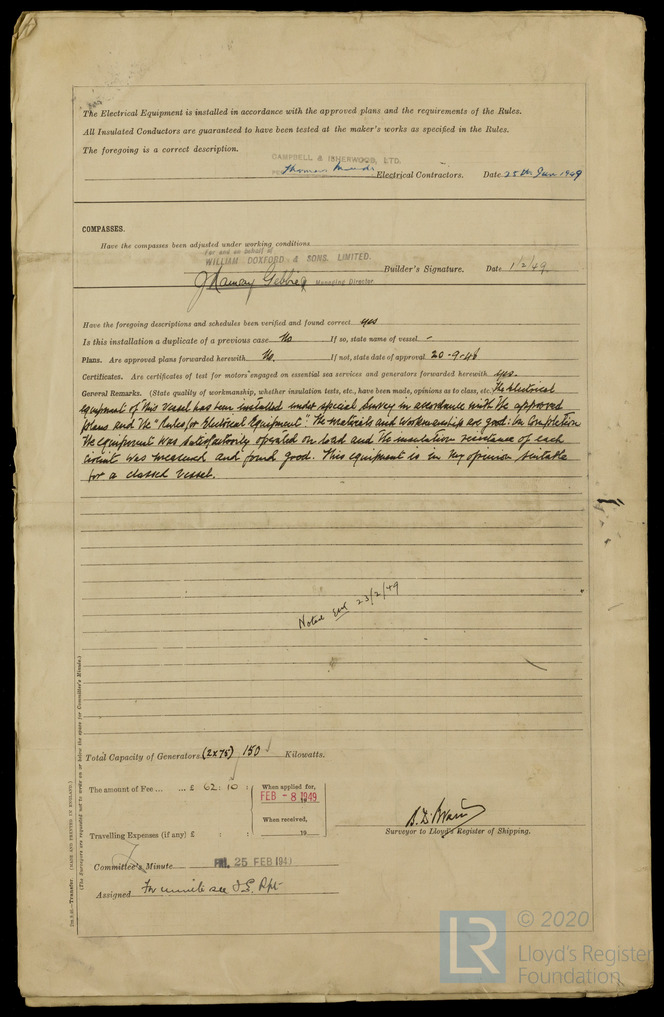 The Electrical Equipment is installed in accordance with the approved plans and the requirements of the Rules.
All Insulated Conductors are guaranteed to have been tested at the maker's works as specified in the Rules.
The foregoing is a correct description.
CAMPBELL & ISHERWOOD, LTD.
Thomas Electrical Contractors. Date 25th Jan 1949
COMPASSES.
Have the compasses been adjusted under working conditions
For and on behalf of
WILLIAM DOXFORD & SONS, LIMITED.
J Ramsay Gebbie Managing Director. Builder's Signature. Date 1/2/49.
Have the foregoing descriptions and schedules been verified and found correct yes
Is this installation a duplicate of a previous case No If so, state name of vessel -
Plans. Are approved plans forwarded herewith No. If not, state date of approval 20-9-46
Certificates. Are certificates of test for motors engaged on essential sea services and generators forwarded herewith yes.
General Remarks. (State quality of workmanship, whether insulation tests, etc., have been made, opinions as to class, etc. The Electrical
equipment of this vessel has been installed under special survey in accordance with the approved
plans and the "Rules for Electrical Equipment". The materials and workmanship are good. On completion
the equipment was satisfactorily operated on load and the insulation resistance of each
circuit was measured and found good. This equipment is in my opinion suitable
for a classed vessel.
Noted 23/2/49
Total Capacity of Generators (2x75) 150 Kilowatts.
The amount of Fee ... ... £ 62 : 10 : When applied for,
FEB - 8 1949
When received,
Travelling Expenses (if any) £ : : 19
Surveyor to Lloyd's Register of Shipping.
Committee's Minute FRI. 25 FEB 1949
Assigned For minute see F.E. Rpt
2m.8.46.—Transfer. (MADE AND PRINTED IN ENGLAND.)
(The Surveyors are requested not to write on or below the space for Committee's Minute.)
LR
© 2020
Lloyd's Register
Foundation